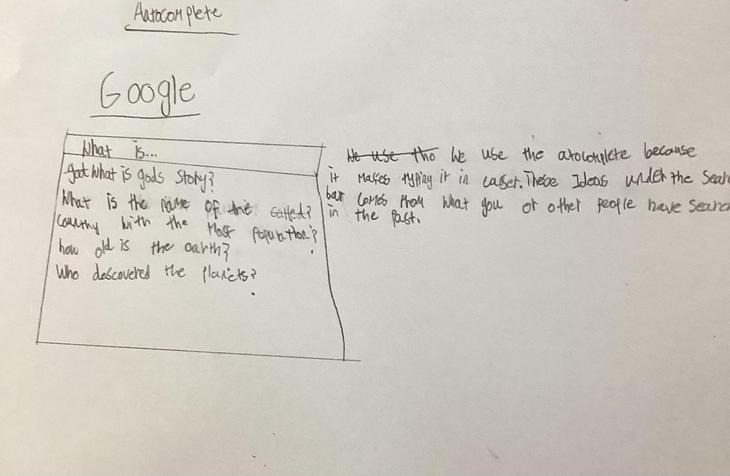 Autocomplete
Google
What is...
god What is gods Story?
What is the name of the called?
country with the Most Population?
how old is the earth?
Who descovered the planets?
We use the We use the atocomplete because
it makes typing it in easer. These Ideas under the Sear
bar comes from What you or other people have Searc
in the Past.